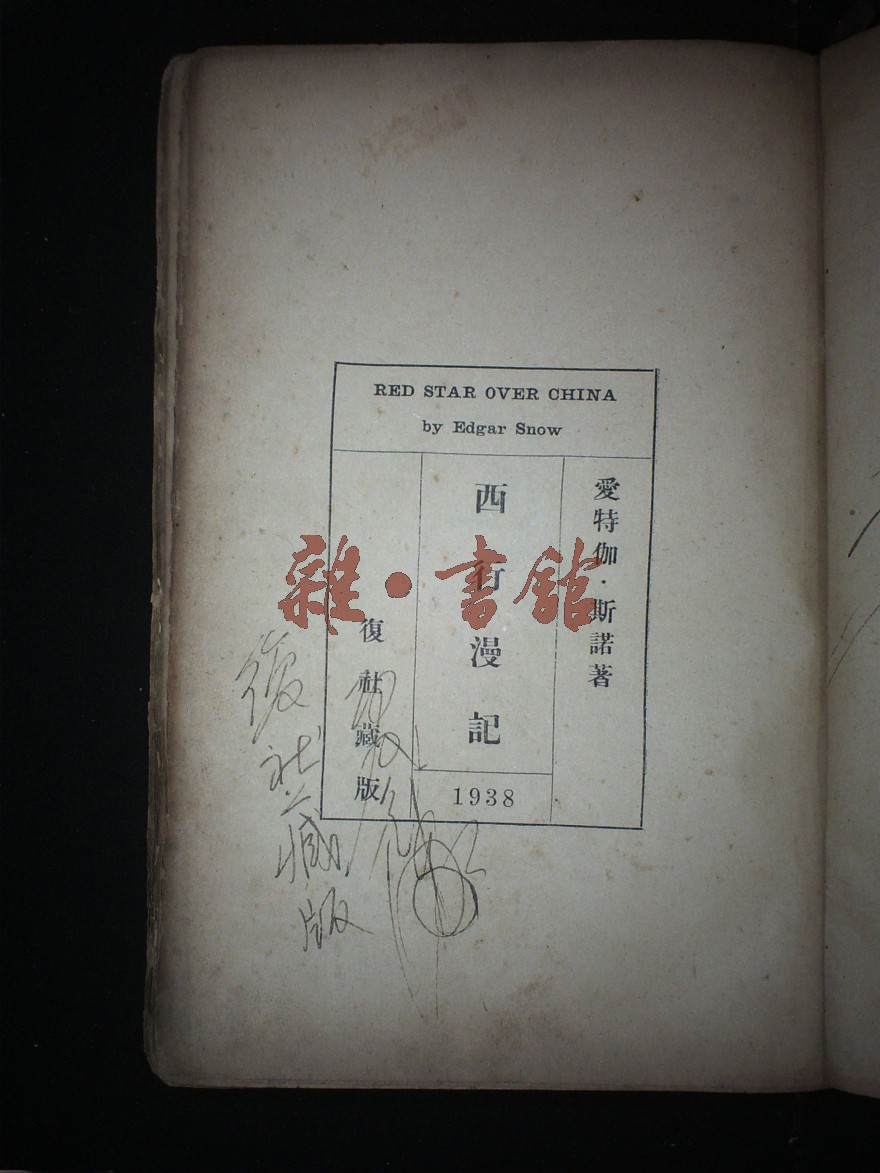 RED STAR OVER CHINA
by Edgar Snow
愛特伽·斯諾著
西行漫記
1938
復社藏版
雜·書館
復社藏版